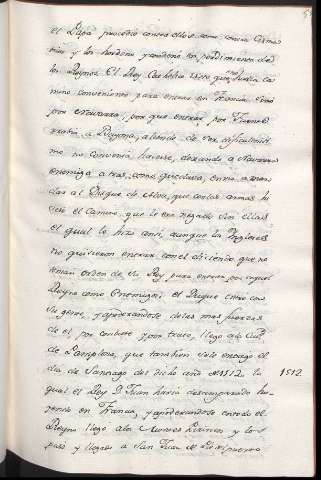 el Papa procedio contra ellos como contra Cisma
ticos y los herederos y condeno los perdimiento de
los Reynos. El Rey Catholico visto que no havia ca
mino conveniente para entrar en Francia sino
por Navarra, por que entrar por Fuente
rravia a Bayona, aliende de ser dificultoso
no convenia hacerse, dexando a Navarra
enemiga atras, como quedava, envio a man
dar al Duque de Alva, que con las armas hi
ciese el camino, que le era negado sin ellas
el qual lo hizo ansi, aunque los Ingleses
no quisieron entrar con el diciendo que no
tenian orden de su Rey para entrar por aquel
Reyno como Enemigos; el Duque entro con
su gente, y apoderandose de las mas fuerzas
de el por combate y por trato, llego a la Ciud.
de Pamplona, que tambien se le entrego el
dia de Santiago del dicho año de 1512 la
1512
qual el Rey D. Juan havia desamparado hu
yendo en Francia, y apoderandose en todo el
Reyno llego a los Montes Pirineos y los
paso y llegado a San Juan de Pie de puerto